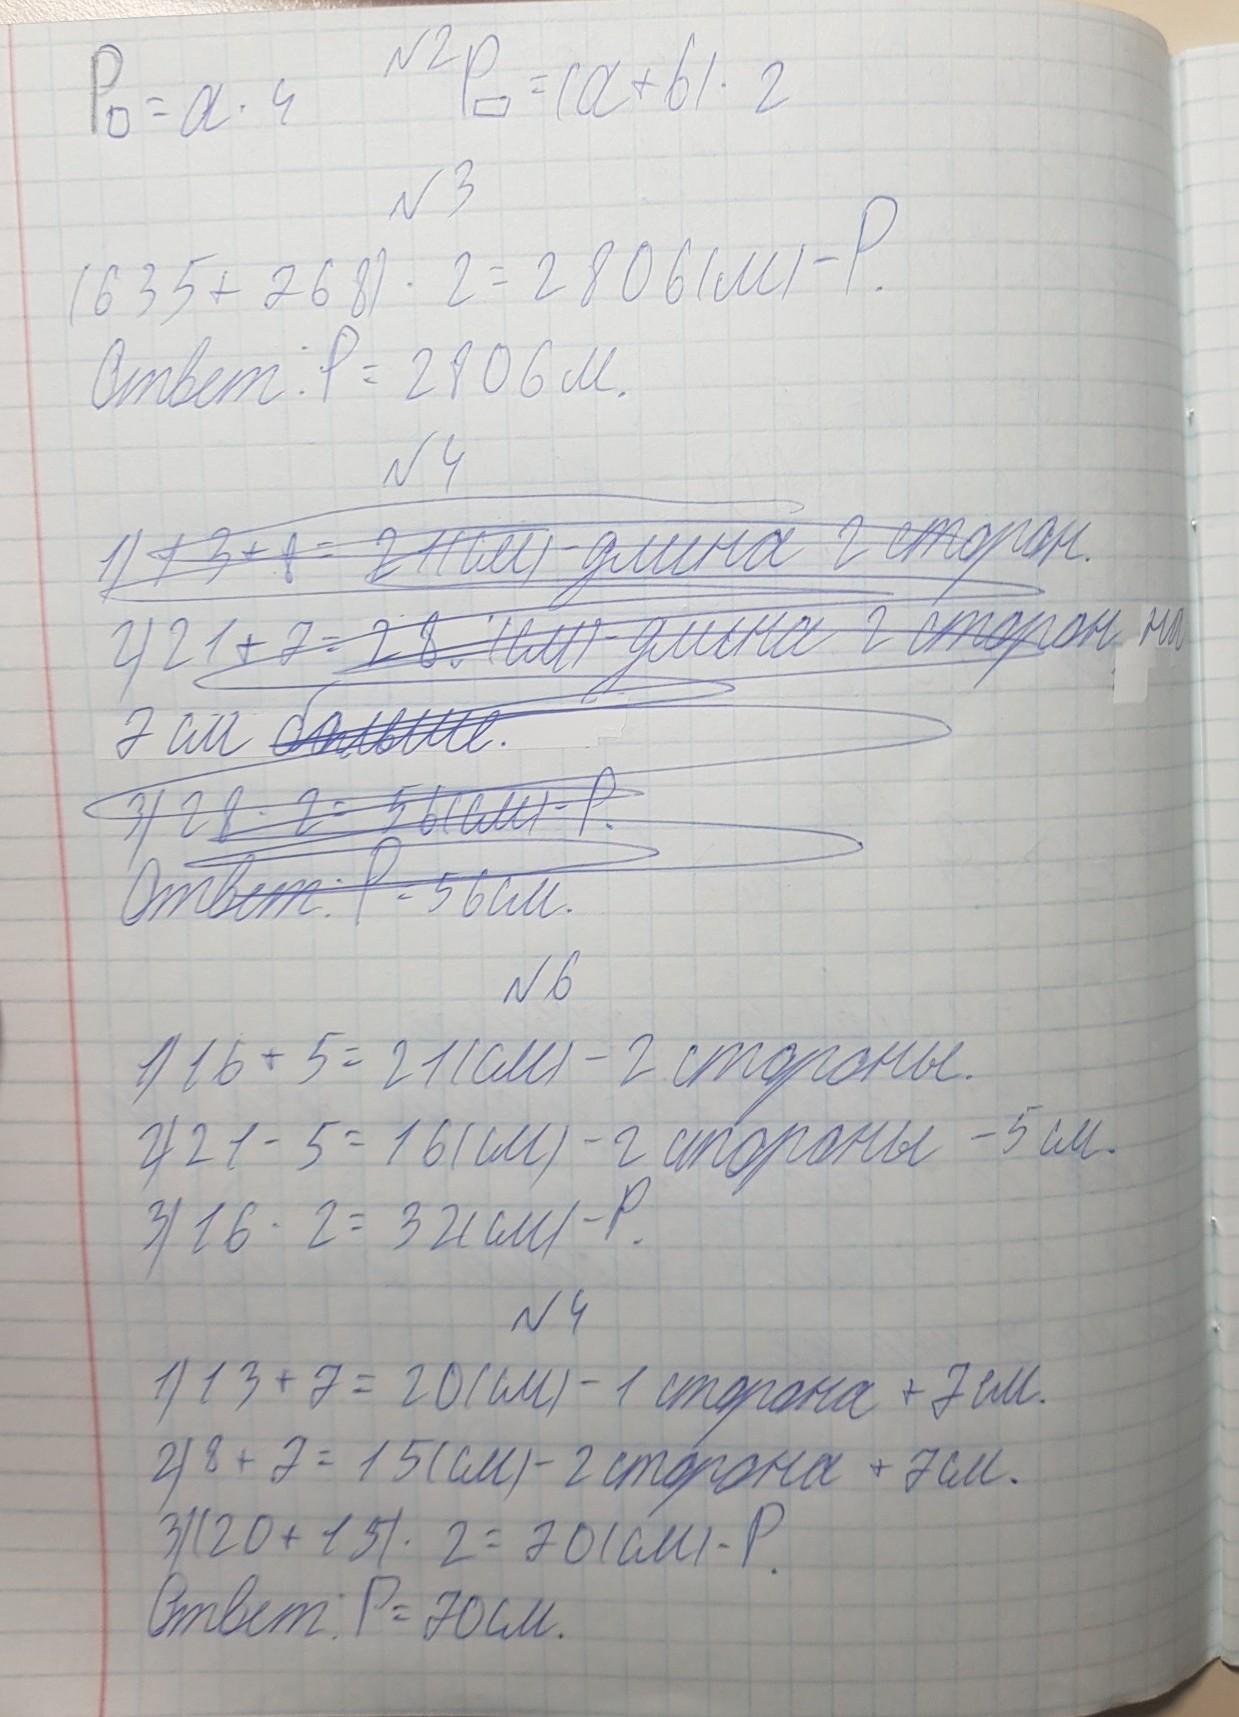 N2
P□ = a · 4 P▭ = (a + b) · 2
N3
(635 + 768) · 2 = 2806(м) - P.
Ответ: P = 2806 м.
N4
1) 13 + 8 = 21(см) - длина 2 сторон.
2) 21 + 7 = 28. (см) - длина 2 сторон на
7 см больше.
3) 28 · 2 = 56(см) - P.
Ответ: P = 56 см.
N6
1) 16 + 5 = 21(см) - 2 стороны.
2) 21 - 5 = 16(см) - 2 стороны - 5 см.
3) 16 · 2 = 32(см) - P.
N4
1) 13 + 7 = 20(см) - 1 сторона + 7 см.
2) 8 + 7 = 15(см) - 2 сторона + 7 см.
3) (20 + 15) · 2 = 70(см) - P.
Ответ: P = 70 см.